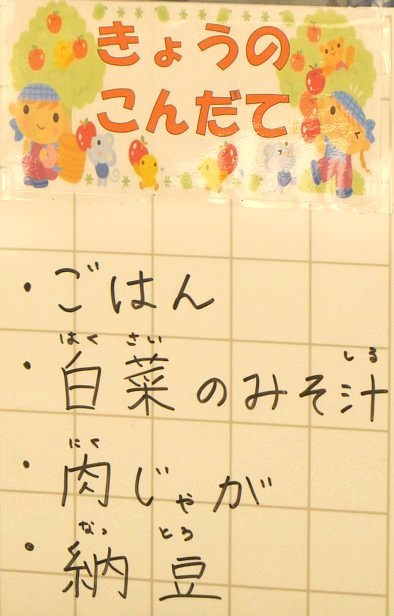 きょうの
こんだて
・ごはん
はくさい しる
・白菜のみそ汁
にく
・肉じゃが
なっとう
・納豆